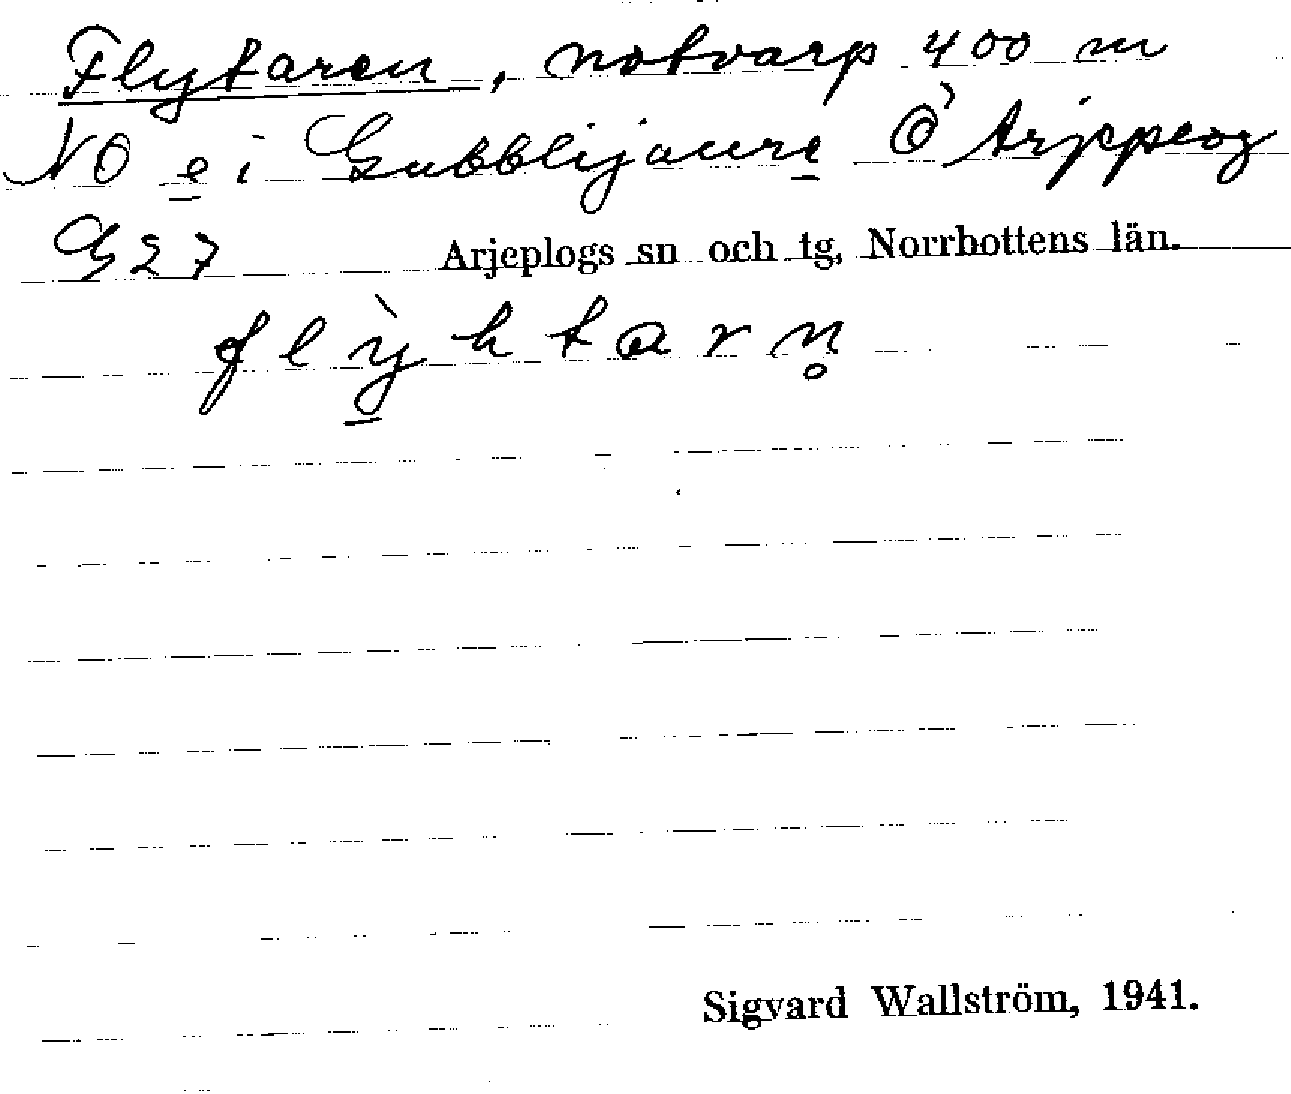 Flytaren, notvarp 400 m
NO e i Gubblijaure Ö Arjeplog
G 27 Arjeplogs sn och tg, Norrbottens län.
flỳktarn̥
Sigvard Wallström, 1941.